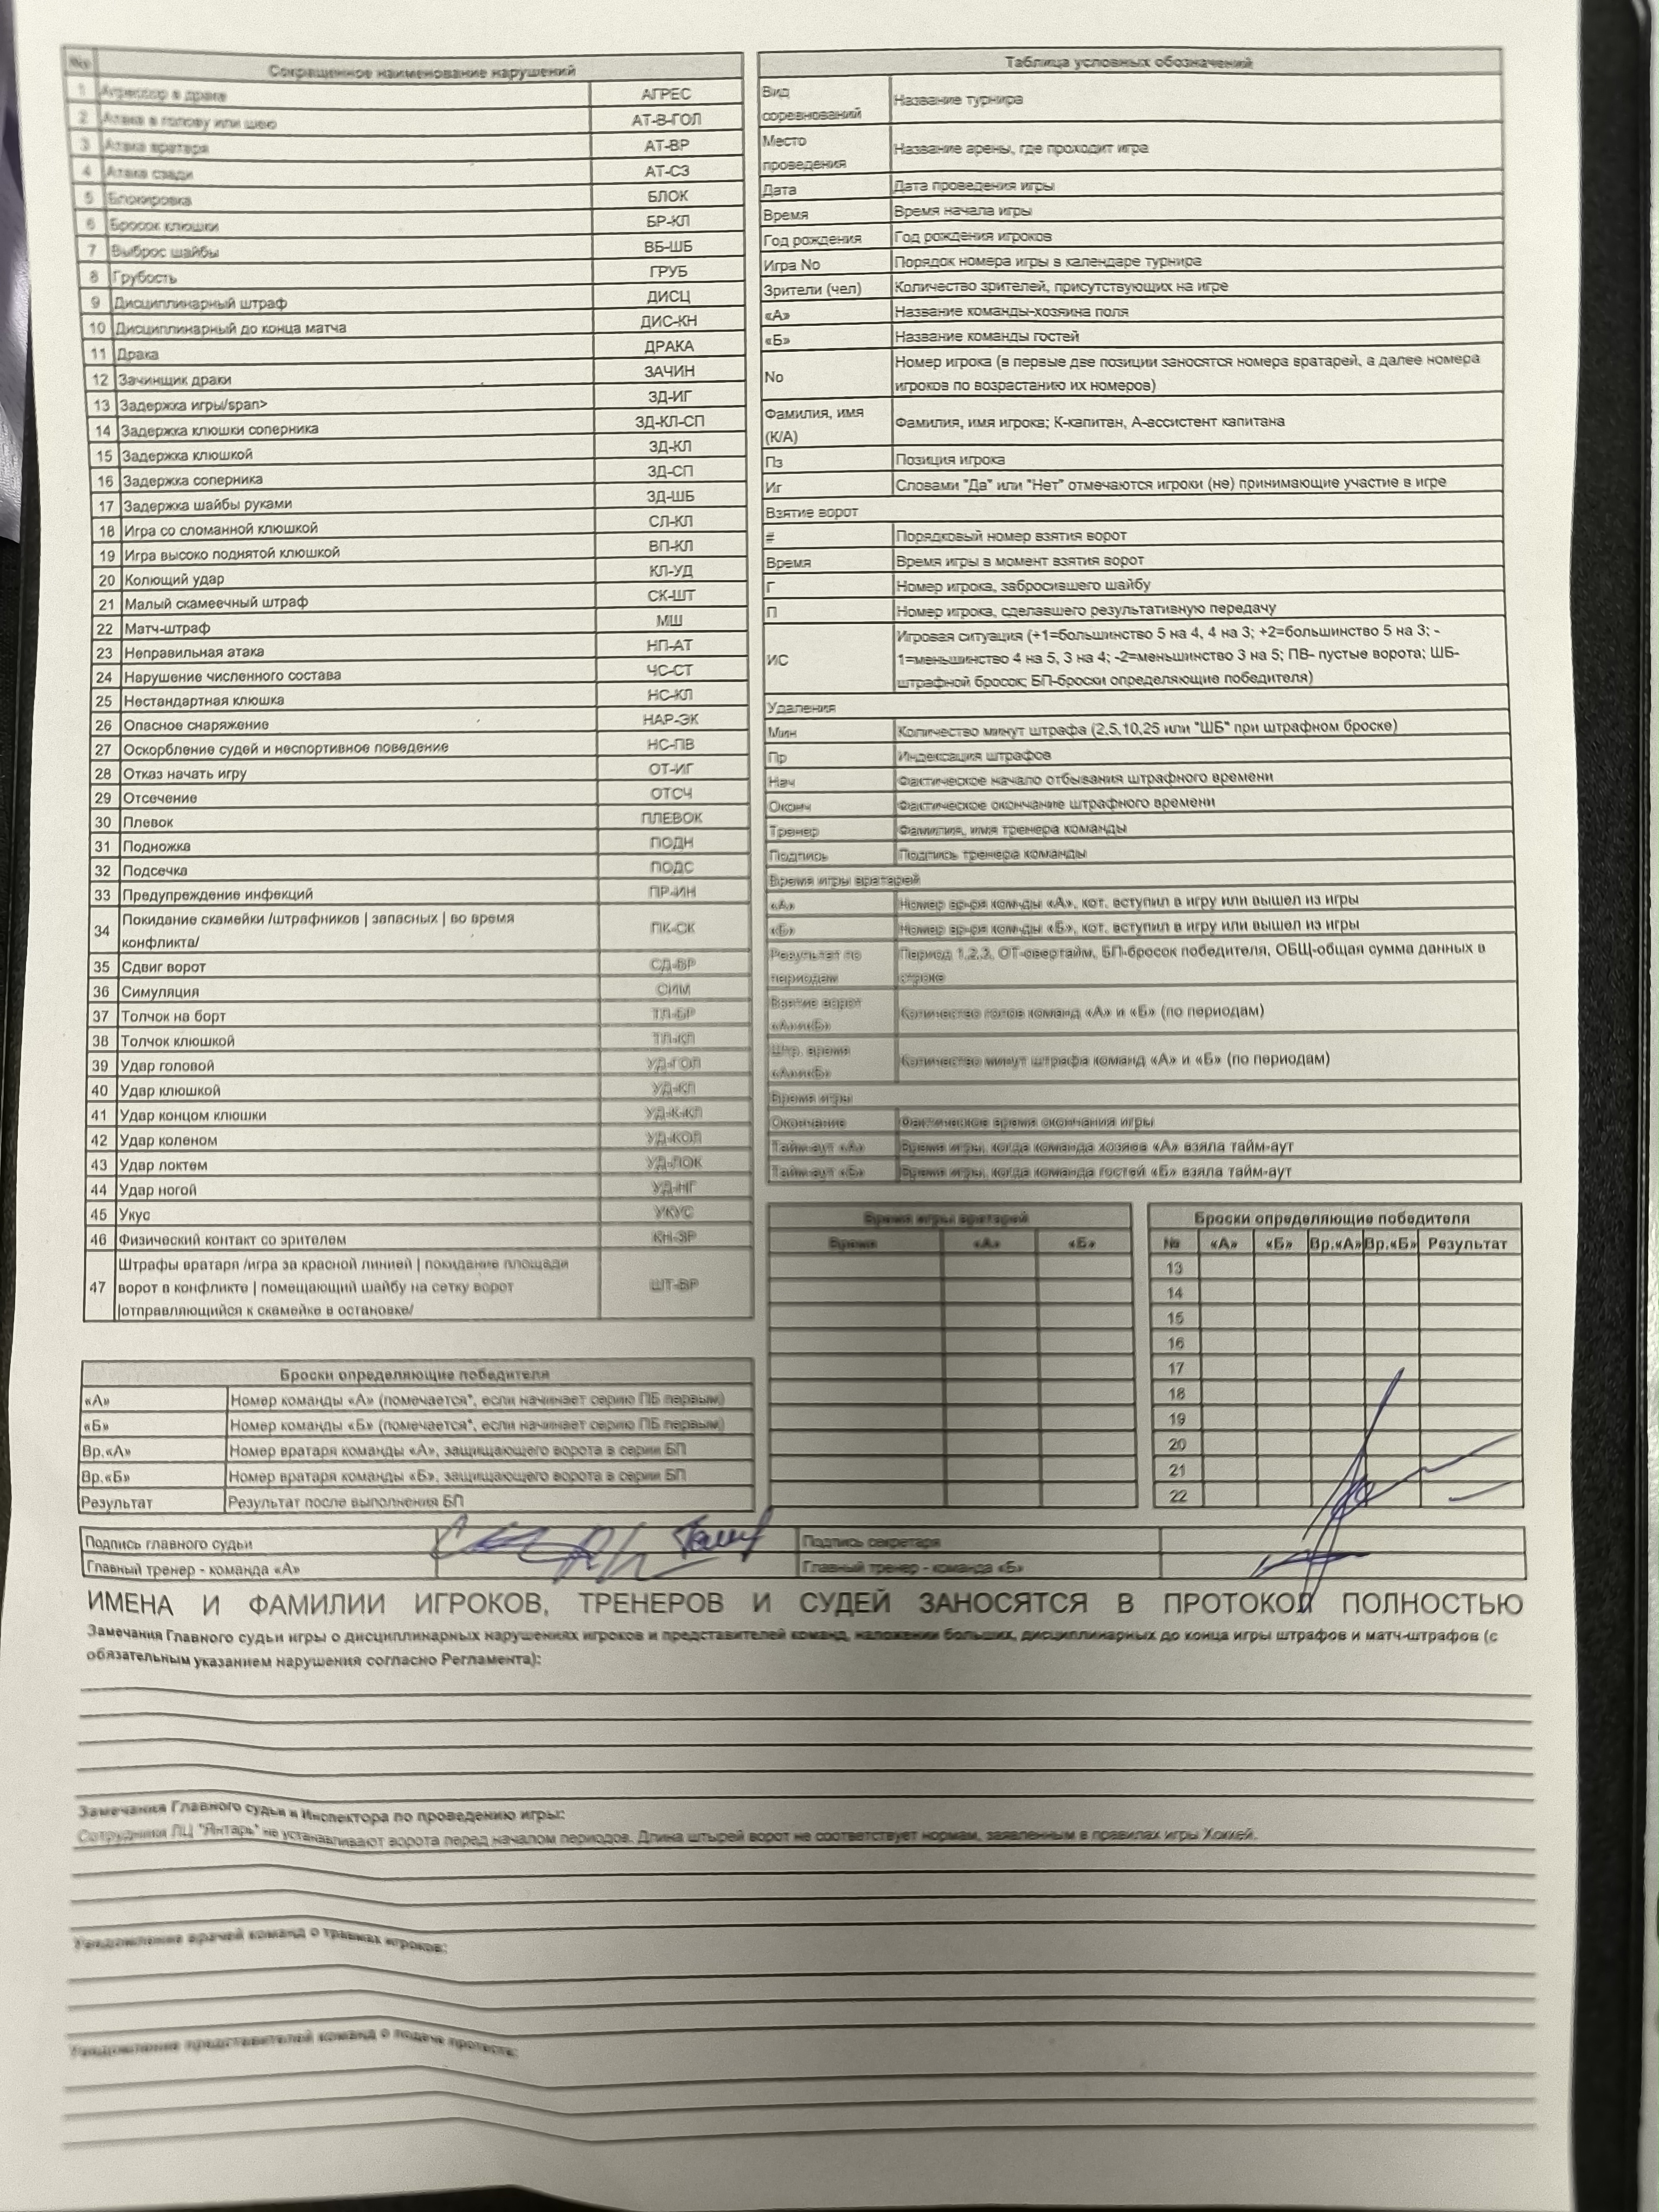 No Сокращенное наименование нарушений
1 Агрессор в драке АГРЕС
2 Атака в голову или шею АТ-В-ГОЛ
3 Атака вратаря АТ-ВР
4 Атака сзади АТ-СЗ
5 Блокировка БЛОК
6 Бросок клюшки БР-КЛ
7 Выброс шайбы ВБ-ШБ
8 Грубость ГРУБ
9 Дисциплинарный штраф ДИСЦ
10 Дисциплинарный до конца матча ДИС-КН
11 Драка ДРАКА
12 Зачинщик драки ЗАЧИН
13 Задержка игры/span> ЗД-ИГ
14 Задержка клюшки соперника ЗД-КЛ-СП
15 Задержка клюшкой ЗД-КЛ
16 Задержка соперника ЗД-СП
17 Задержка шайбы руками ЗД-ШБ
18 Игра со сломанной клюшкой СЛ-КЛ
19 Игра высоко поднятой клюшкой ВП-КЛ
20 Колющий удар КЛ-УД
21 Малый скамеечный штраф СК-ШТ
22 Матч-штраф МШ
23 Неправильная атака НП-АТ
24 Нарушение численного состава ЧС-СТ
25 Нестандартная клюшка НС-КЛ
26 Опасное снаряжение НАР-ЭК
27 Оскорбление судей и неспортивное поведение НС-ПВ
28 Отказ начать игру ОТ-ИГ
29 Отсечение ОТСЧ
30 Плевок ПЛЕВОК
31 Подножка ПОДН
32 Подсечка ПОДС
33 Предупреждение инфекций ПР-ИН
34 Покидание скамейки /штрафников | запасных | во время
конфликта/ ПК-СК
35 Сдвиг ворот СД-ВР
36 Симуляция СИМ
37 Толчок на борт ТЛ-БР
38 Толчок клюшкой ТЛ-КЛ
39 Удар головой УД-ГОЛ
40 Удар клюшкой УД-КЛ
41 Удар концом клюшки УД-К-КЛ
42 Удар коленом УД-КОЛ
43 Удар локтем УД-ЛОК
44 Удар ногой УД-НГ
45 Укус УКУС
46 Физический контакт со зрителем КН-ЗР
47 Штрафы вратаря /игра за красной линией | покидание площади
ворот в конфликте | помещающий шайбу на сетку ворот ШТ-ВР
|отправляющийся к скамейке в остановке/
Броски определяющие победителя
«А» Номер команды «А» (помечается*, если начинает серию ПБ первым)
«Б» Номер команды «Б» (помечается*, если начинает серию ПБ первым)
Вр.«А» Номер вратаря команды «А», защищающего ворота в серии БП
Вр.«Б» Номер вратаря команды «Б», защищающего ворота в серии БП
Результат Результат после выполнения БП
Таблица условных обозначений
Вид
соревнований Название турнира
Место
проведения Название арены, где проходит игра
Дата Дата проведения игры
Время Время начала игры
Год рождения Год рождения игроков
Игра No Порядок номера игры в календаре турнира
Зрители (чел) Количество зрителей, присутствующих на игре
«А» Название команды-хозяина поля
«Б» Название команды гостей
No Номер игрока (в первые две позиции заносятся номера вратарей, а далее номера
игроков по возрастанию их номеров)
Фамилия, имя
(К/А) Фамилия, имя игрока; К-капитан, А-ассистент капитана
Пз Позиция игрока
Иг Словами "Да" или "Нет" отмечаются игроки (не) принимающие участие в игре
Взятие ворот
# Порядковый номер взятия ворот
Время Время игры в момент взятия ворот
Г Номер игрока, забросившего шайбу
П Номер игрока, сделавшего результативную передачу
ИС Игровая ситуация (+1=большинство 5 на 4, 4 на 3; +2=большинство 5 на 3; -
1=меньшинство 4 на 5, 3 на 4; -2=меньшинство 3 на 5; ПВ- пустые ворота; ШБ-
штрафной бросок; БП-броски определяющие победителя)
Удаления
Мин Количество минут штрафа (2,5,10,25 или "ШБ" при штрафном броске)
Пр Индексация штрафов
Нач Фактическое начало отбывания штрафного времени
Оконч Фактическое окончание штрафного времени
Тренер Фамилия, имя тренера команды
Подпись Подпись тренера команды
Время игры вратарей
«А» Номер вр-ря ком-ды «А», кот. вступил в игру или вышел из игры
«Б» Номер вр-ря ком-ды «Б», кот. вступил в игру или вышел из игры
Результат по
периодам Период 1,2,3, ОТ-овертайм, БП-бросок победителя, ОБЩ-общая сумма данных в
строке
Взятие ворот
«А»и«Б» Количество голов команд «А» и «Б» (по периодам)
Штр. время
«А»и«Б» Количество минут штрафа команд «А» и «Б» (по периодам)
Время игры
Окончание Фактическое время окончания игры
Тайм-аут «А» Время игры, когда команда хозяев «А» взяла тайм-аут
Тайм-аут «Б» Время игры, когда команда гостей «Б» взяла тайм-аут
Время игры вратарей
Время «А» «Б»
Броски определяющие победителя
№ «А» «Б» Вр.«А» Вр.«Б» Результат
13
14
15
16
17
18
19
20
21
22
Подпись главного судьи Подпись секретаря
Главный тренер - команда «А» Главный тренер - команда «Б»
ИМЕНА И ФАМИЛИИ ИГРОКОВ, ТРЕНЕРОВ И СУДЕЙ ЗАНОСЯТСЯ В ПРОТОКОЛ ПОЛНОСТЬЮ
Замечания Главного судьи игры о дисциплинарных нарушениях игроков и представителей команд, наложении больших, дисциплинарных до конца игры штрафов и матч-штрафов (с
обязательным указанием нарушения согласно Регламента):
Замечания Главного судьи и Инспектора по проведению игры:
Сотрудники ЛЦ "Янтарь" не устанавливают ворота перед началом периодов. Длина штырей ворот не соответствует нормам, заявленным в правилах игры Хоккей.
Уведомление врачей команд о травмах игроков:
Уведомление представителей команд о подаче протеста: